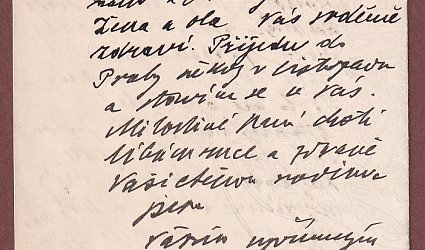 Žena a ola Vás srdečně
zdraví. Přijedu do
Prahy někdy v listopadu
a stavím se u Vás.
Milostivé paní choti
líbám ruce a zdravě
Vaši ctěnou rodinu
jsem
Vaším upřímným